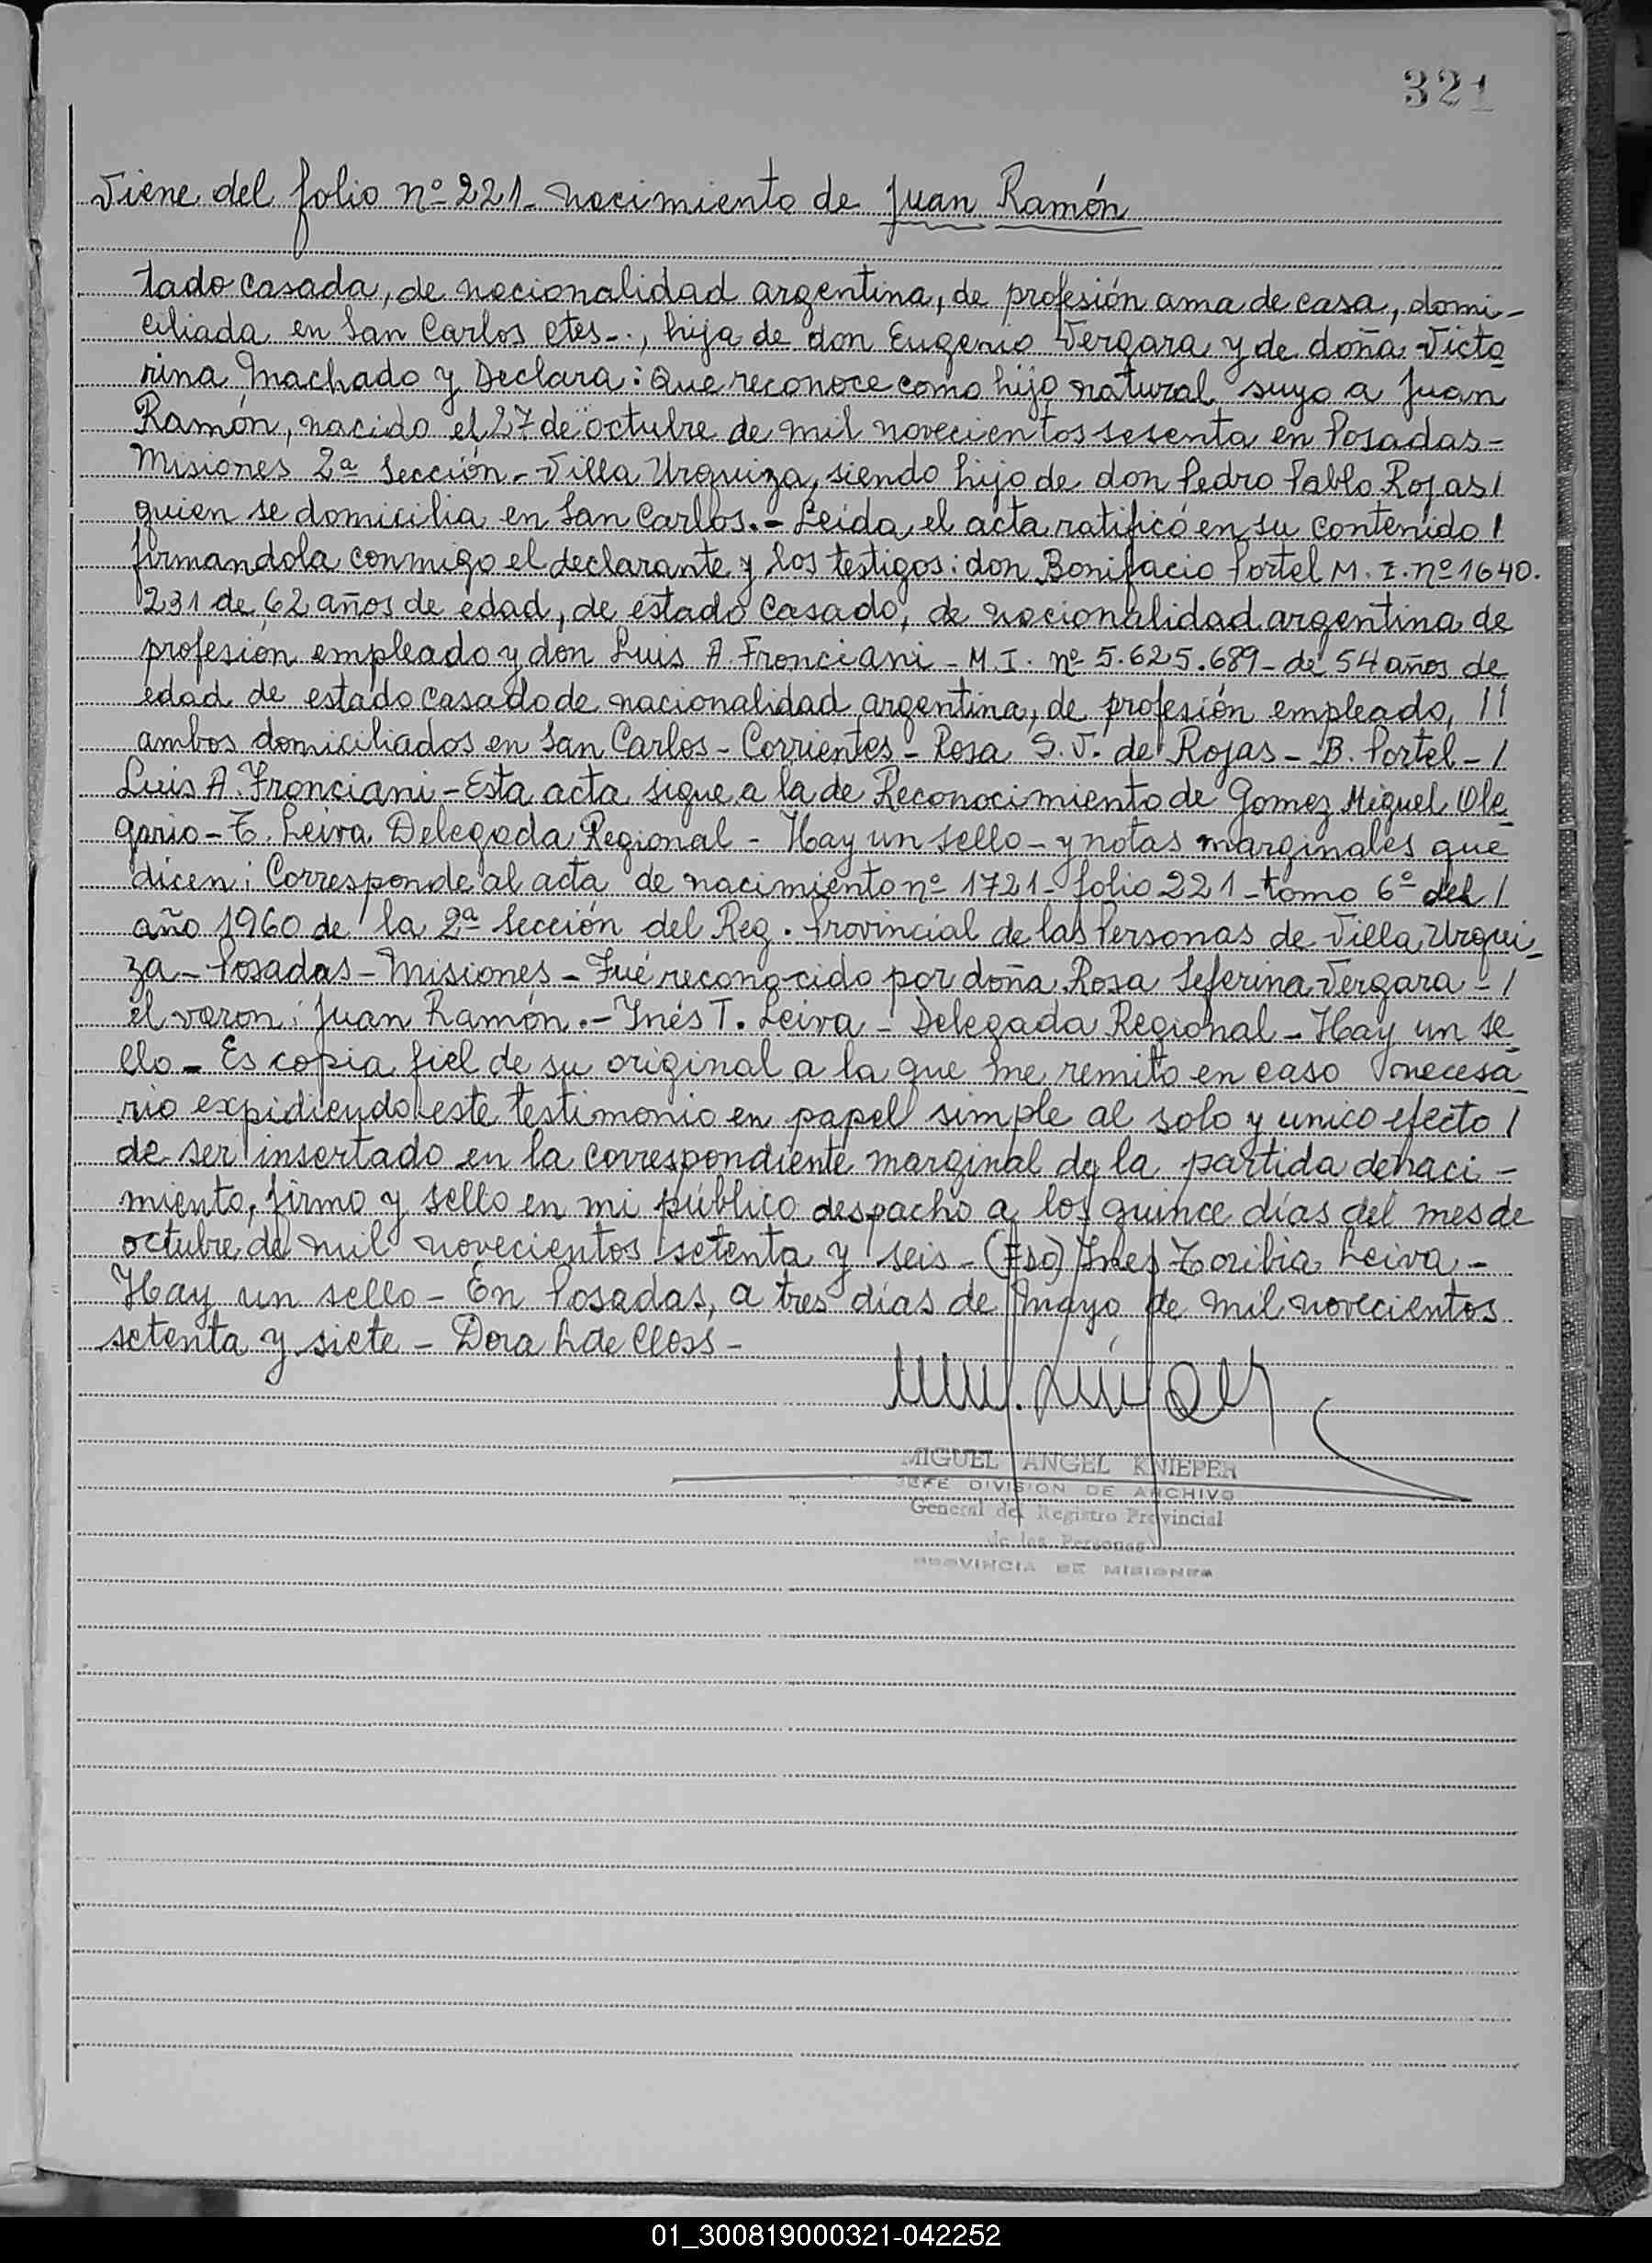 321
Viene del folio nº 221- nacimiento de Juan Ramón
tado casada, de nacionalidad argentina, de profesión ama de casa, domi-
ciliada en San Carlos Ctes-., hija de don Eugenio Vergara y de doña Victo
rina Machado y Declara: Que reconoce como hijo natural suyo a Juan
Ramón, nacido el 27 de octubre de mil novecientos sesenta en Posadas-
Misiones 2ª Sección - Villa Urquiza, siendo hijo de don Pedro Pablo Rojas/
quien se domicilia en San Carlos.- Leída el acta ratificó en su contenido /
firmandola conmigo el declarante y los testigos: don Bonifacio Portel M. I. nº 1640.
231 de 62 años de edad, de estado casado, de nacionalidad argentina de
profesión empleado y don Luis A. Fronciani - M.I. nº 5.625.689- de 54 años de
edad de estado casado de nacionalidad argentina, de profesión empleado, //
ambos domiciliados en San Carlos - Corrientes - Rosa S. V. de Rojas - B. Portel - /
Luis A. Fronciani - Esta acta sigue a la de Reconocimiento de Gomez Miguel Ole
gario - T. Leiva Delegada Regional - Hay un sello - y notas marginales que
dicen: Corresponde al acta de nacimiento nº 1721- folio 221 - tomo 6º del /
año 1960 de la 2ª Sección del Reg. Provincial de las Personas de Villa Urqui-
za - Posadas - Misiones - Fué reconocido por doña Rosa Seferina Vergara - /
el varon: Juan Ramón.- Inés T. Leiva - Delegada Regional - Hay un se
llo - Es copia fiel de su original a la que me remito en caso necesa
rio expidiendo este testimonio en papel simple al solo y unico efecto /
de ser insertado en la correspondiente marginal de la partida de naci-
miento, firmo y sello en mi público despacho a los quince días del mes de
octubre de mil novecientos setenta y seis - (Fdo) Ines Toribia Leiva -
Hay un sello - En Posadas, a tres días de Mayo de mil novecientos
setenta y siete - Dora L de Closs -
MIGUEL ANGEL KNIEPER
JEFE DIVISION DE ARCHIVO
General del Registro Provincial
de las Personas
PROVINCIA DE MISIONES
01_300819000321-042252